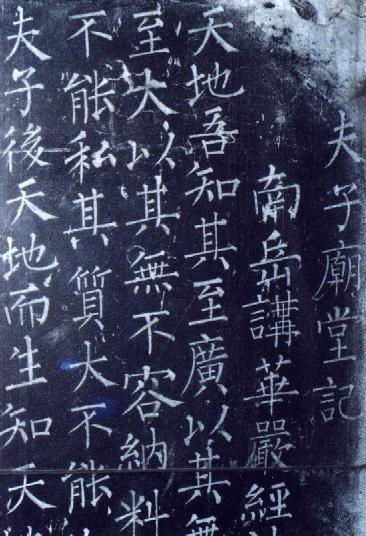 夫子廟堂記
南岳講華嚴經
天地吾知其至廣以其無
至大以其無不容納料
不能私其質大不能
夫子後天地而生知天